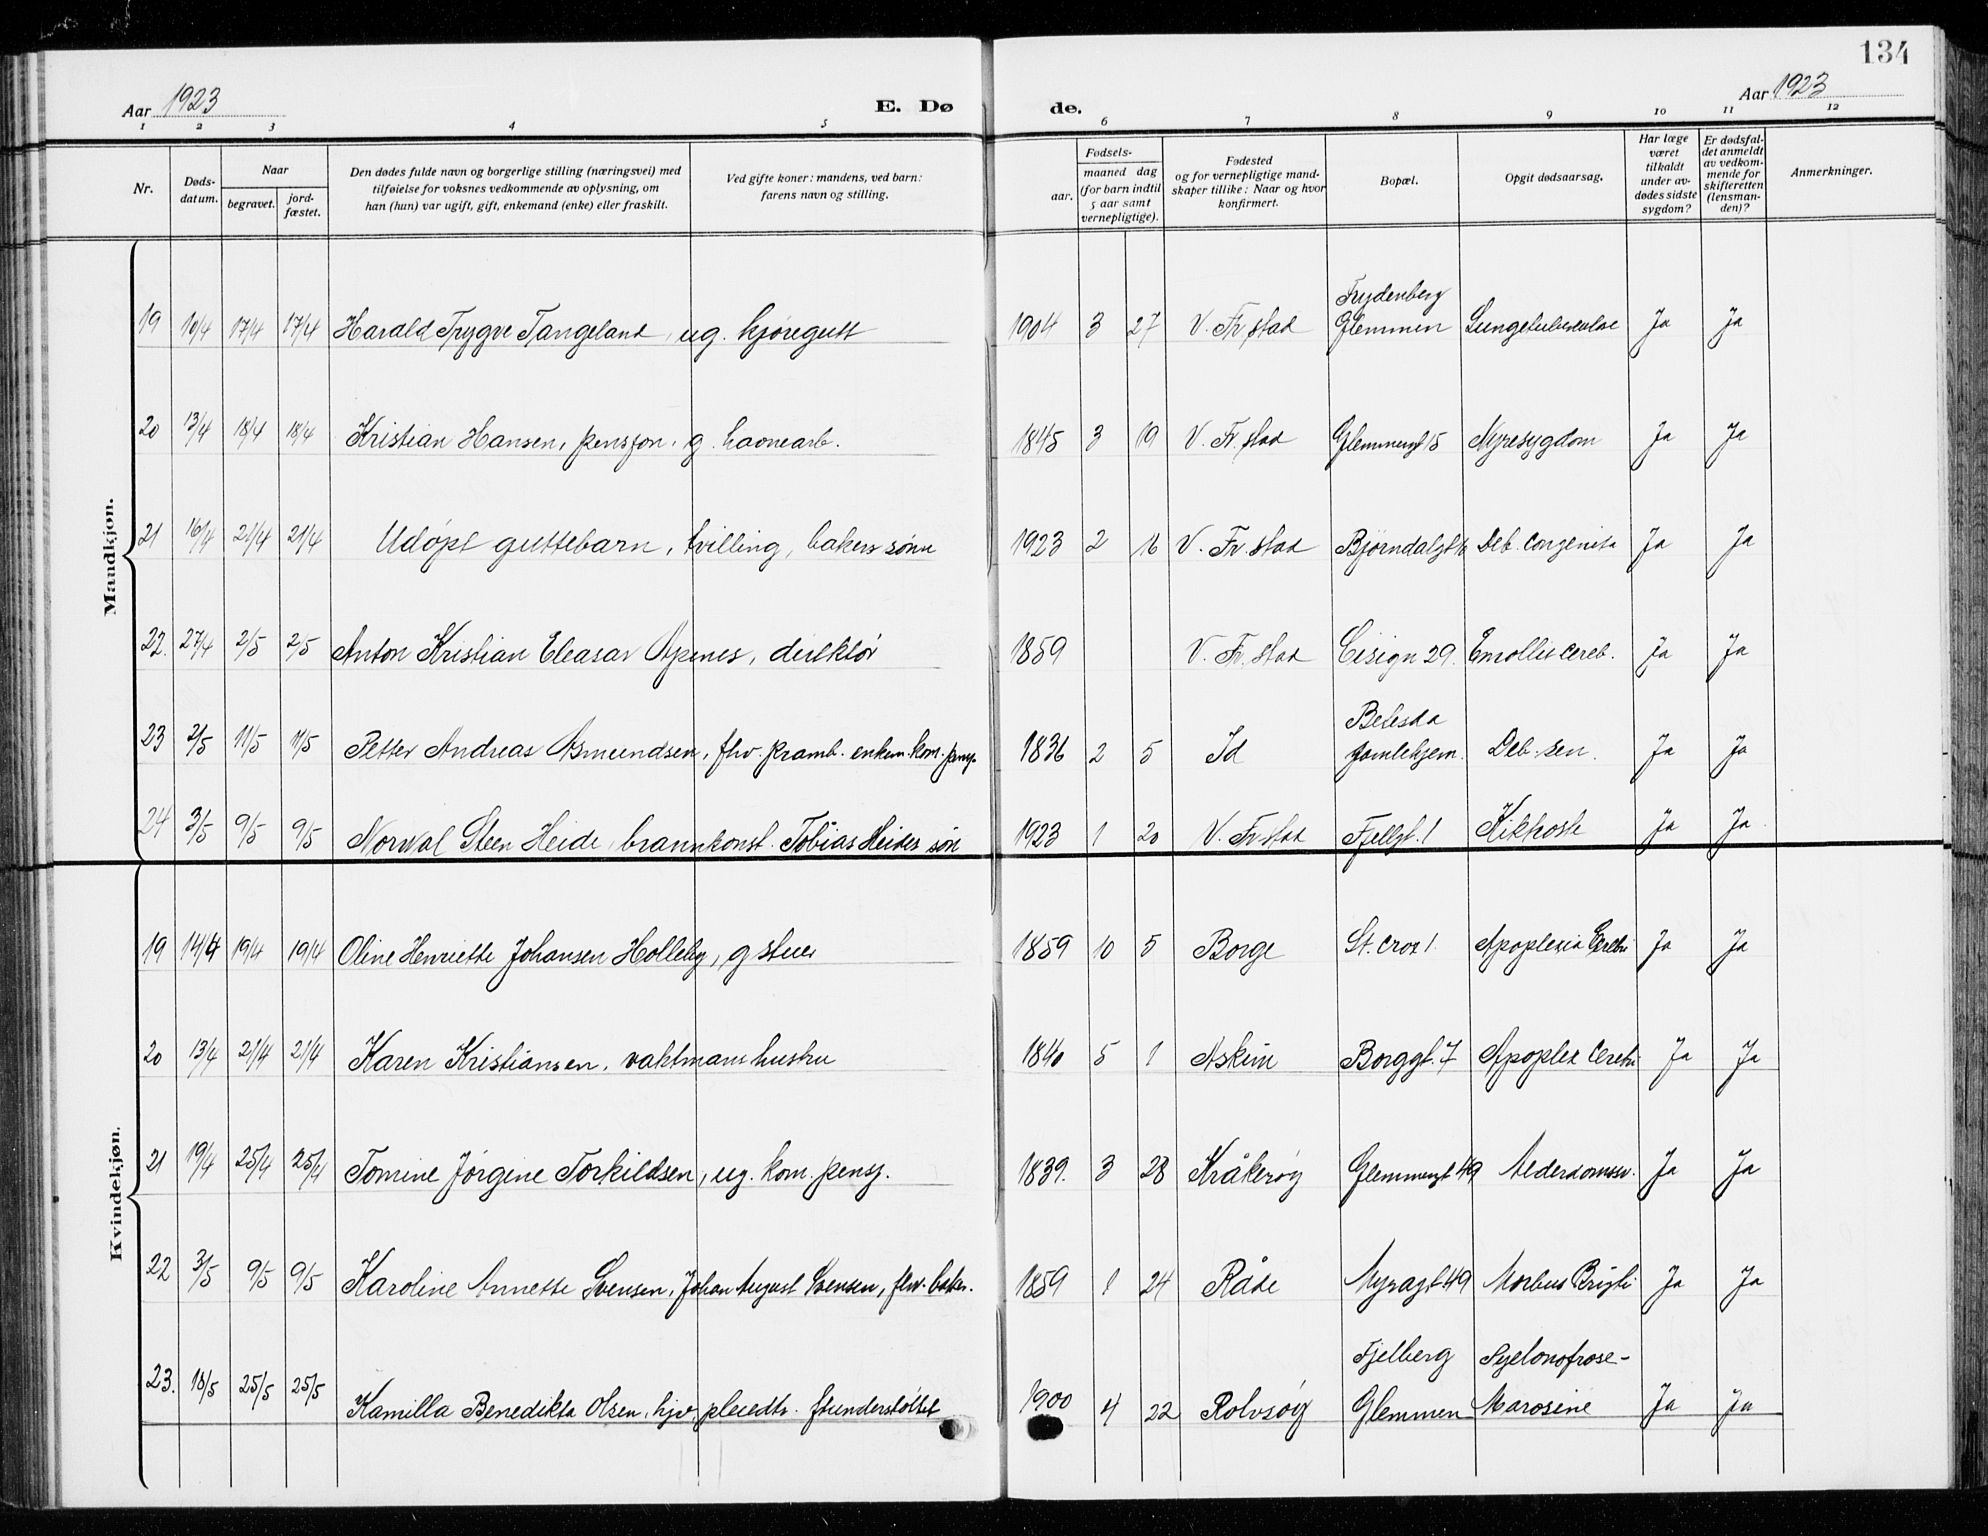 134
Aar 1923 E. Dø de. Aar 1923
1 2 3 4 5 6 7 8 9 10 11 12
Nr. Døds-datum. Naar begravet. jord-fæstet. Den dødes fulde navn og borgerlige stilling (næringsvei) med tilføielse for voksnes vedkommende av oplysning, om han (hun) var ugift, gift, enkemand (enke) eller fraskilt. Ved gifte koner: mandens, ved barn: farens navn og stilling. Fødsels- aar. maaned dag (for barn indtil 5 aar samt vernepligtige). Fødested og for vernepligtige mand-skaper tillike: Naar og hvor konfirmert. Bopæl. Opgit dødsaarsag. Har læge været tilkaldt under av-dødes sidste sygdom? Er dødsfal-det anmeldt av vedkom-mende for skifteretten (lensman-den)? Anmerkninger.
Mandkjøn.
19 10/4 17/4 17/4 Harald Trygve Tangeland, ug. kjøregutt 1904 3 27 V. Fr.stad Frydenberg Glemmen Lungetuberculose Ja Ja
20 13/4 18/4 18/4 Kristian Hansen, pensjon. g. havnearb. 1845 3 19 V. Fr.stad Glemmengt 15 Nyresygdom Ja Ja
21 16/4 21/4 21/4 Udøpt guttebarn, tvilling, bakers sønn 1923 2 16 V. Fr.stad Bjørndalgt Deb. congenita Ja Ja
22. 27/4 2/5 2/5 Anton Kristian Eleasar Apenes, direktør 1859 V. Fr.stad Cisign 29. Emollit cereb. Ja Ja
23 2/5 11/5 11/5 Petter Andreas Asmundsen, fhv. kramb. enkem. kom. pensj. 1836 2 5 Id Betesda gamlehjem. Deb. sen. Ja Ja
24 3/5 9/5 9/5 Norval Steen Heide, brannkonst. Tobias Heides søn 1923 1 20 V. Fr.stad Fjellgt. 1 Kikhoste Ja Ja
Kvindekjøn.
19 14/4 19/4 19/4 Oline Henriette Johansen Holleby, g stuer 1859 10 5 Borge St. Croix 1. Apoplexia Cerebri Ja Ja
20 13/4 21/4 21/4 Karen Kristiansen, vaktmans hustru 1840 5 1 Askim Borggt. 7 Apoplex Cerebri Ja Ja
21 19/4 25/4 25/4 Tomine Jørgine Torkildsen, ug. kom. pensj. 1839. 3 28 Kråkerøy Glemmengt 49 Alderdomssv. Ja Ja
22 3/5 9/5 9/5 Karoline Annette Svensen, Johan August Svensen, fhv. baker. 1859 1 24 Råde Myragt. 49 Morbus Brigti Ja Ja
23. 18/5 25/5 25/5 Kamilla Benedikta Olsen, hjv. pleiedtr. 1900 4 22 Rolvsøy Fjelberg Glemmen Ja Ja